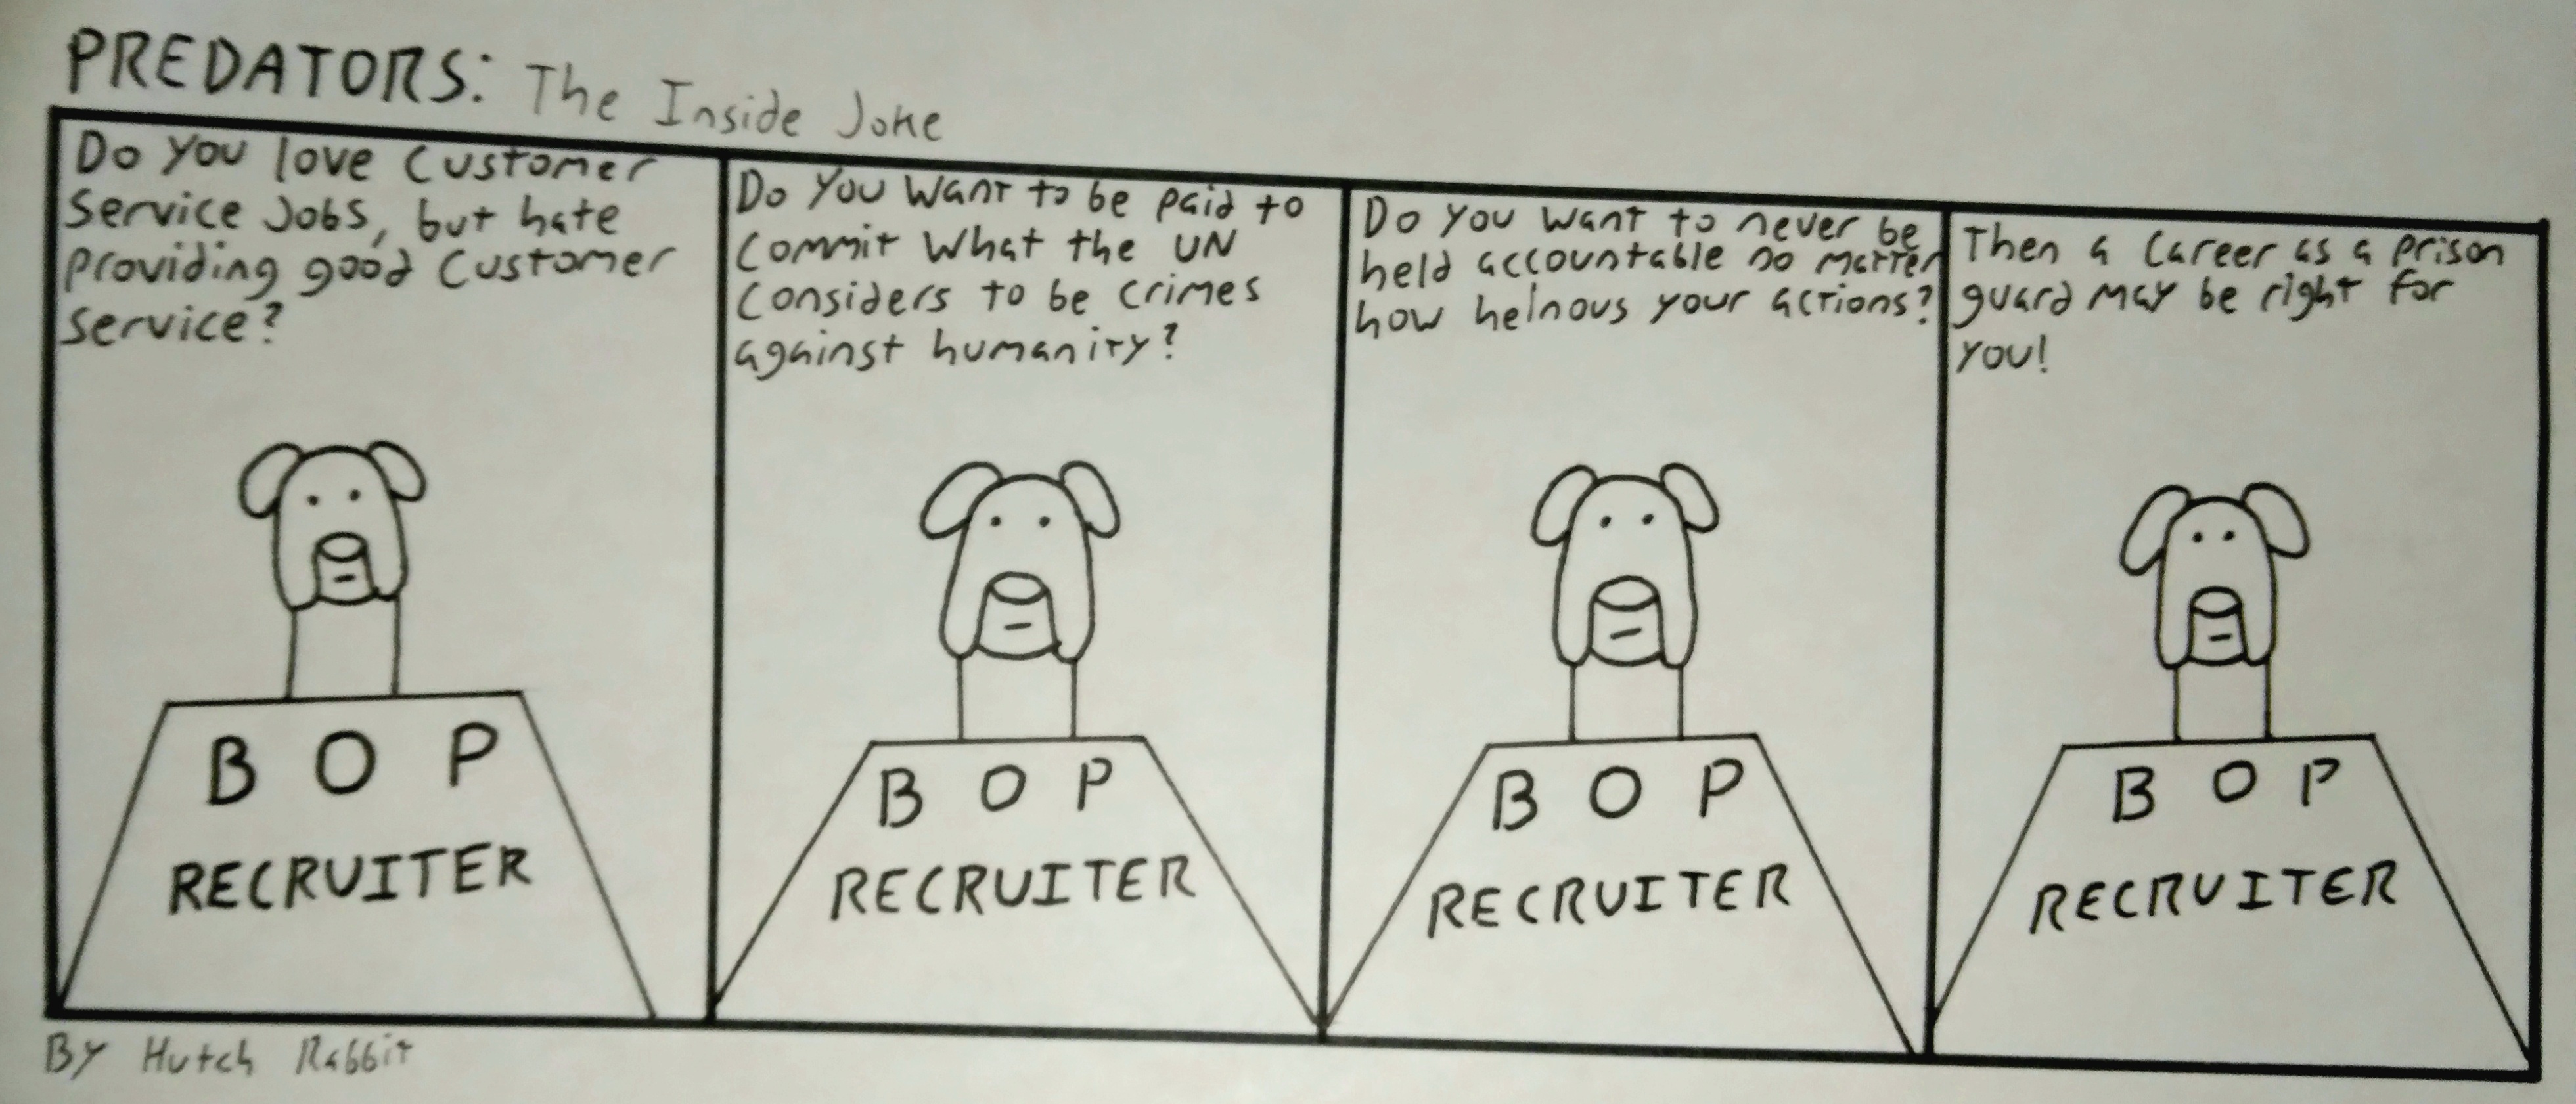 PREDATORS: The Inside Joke
Do you love customer
service jobs, but hate
providing good customer
service?
B O P
RECRUITER
Do you want to be paid to
commit what the UN
considers to be crimes
against humanity?
B O P
RECRUITER
Do you want to never be
held accountable no matter
how heinous your actions?
B O P
RECRUITER
Then a career as a prison
guard may be right for
you!
B O P
RECRUITER
By Hutch Rabbit